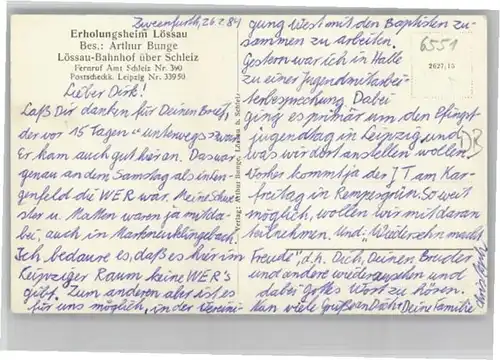 Zweenfurth, 26.2.84
Erholungsheim Lössau
Bes.: Arthur Bunge
Lössau-Bahnhof über Schleiz
Fernruf Amt Schleiz Nr. 390
Postscheckk. Leipzig Nr. 33950
Lieber Dirk!
Laß Dir danken für Deinen Brief,
der vor 15 Tagen "unterwegs" war.
Er kam auch gut hier an. Das war
genau an dem Samstag als in
genfeld die WER war. Meine Schwe-
ster u. Matten waren ja mit da-
bei, auch in Markneukirchen.
Ich bedaure es, daß es hier im
Leipziger Raum keine WER's
gibt. Zum anderen aber ist es
für uns möglich, in der Vereini-
Verlag: Arthur Bunge, Lössau b. Schleiz
gung West mit den Baptisten zu-
sammen zu arbeiten.
Gestern war ich in Halle
zu einer Jugendmitarbei-
terbesprechung. Dabei
ging es primär um den Pfingst-
jugendtag in Leipzig und
was wir dort anstellen wollen.
Vorher kommt ja der JT am Kar-
freitag in Rempesgrün. So weit
möglich, wollen wir mit daran
teilnehmen. Und "Wiedersehn macht
Freude", d.h. Dich, Deinen Bruder
und andere wiederzusehen und
dabei Gottes Wort zu hören.
Nun viele Grüße an Dich + Deine Familie
6551
2627,15
DB